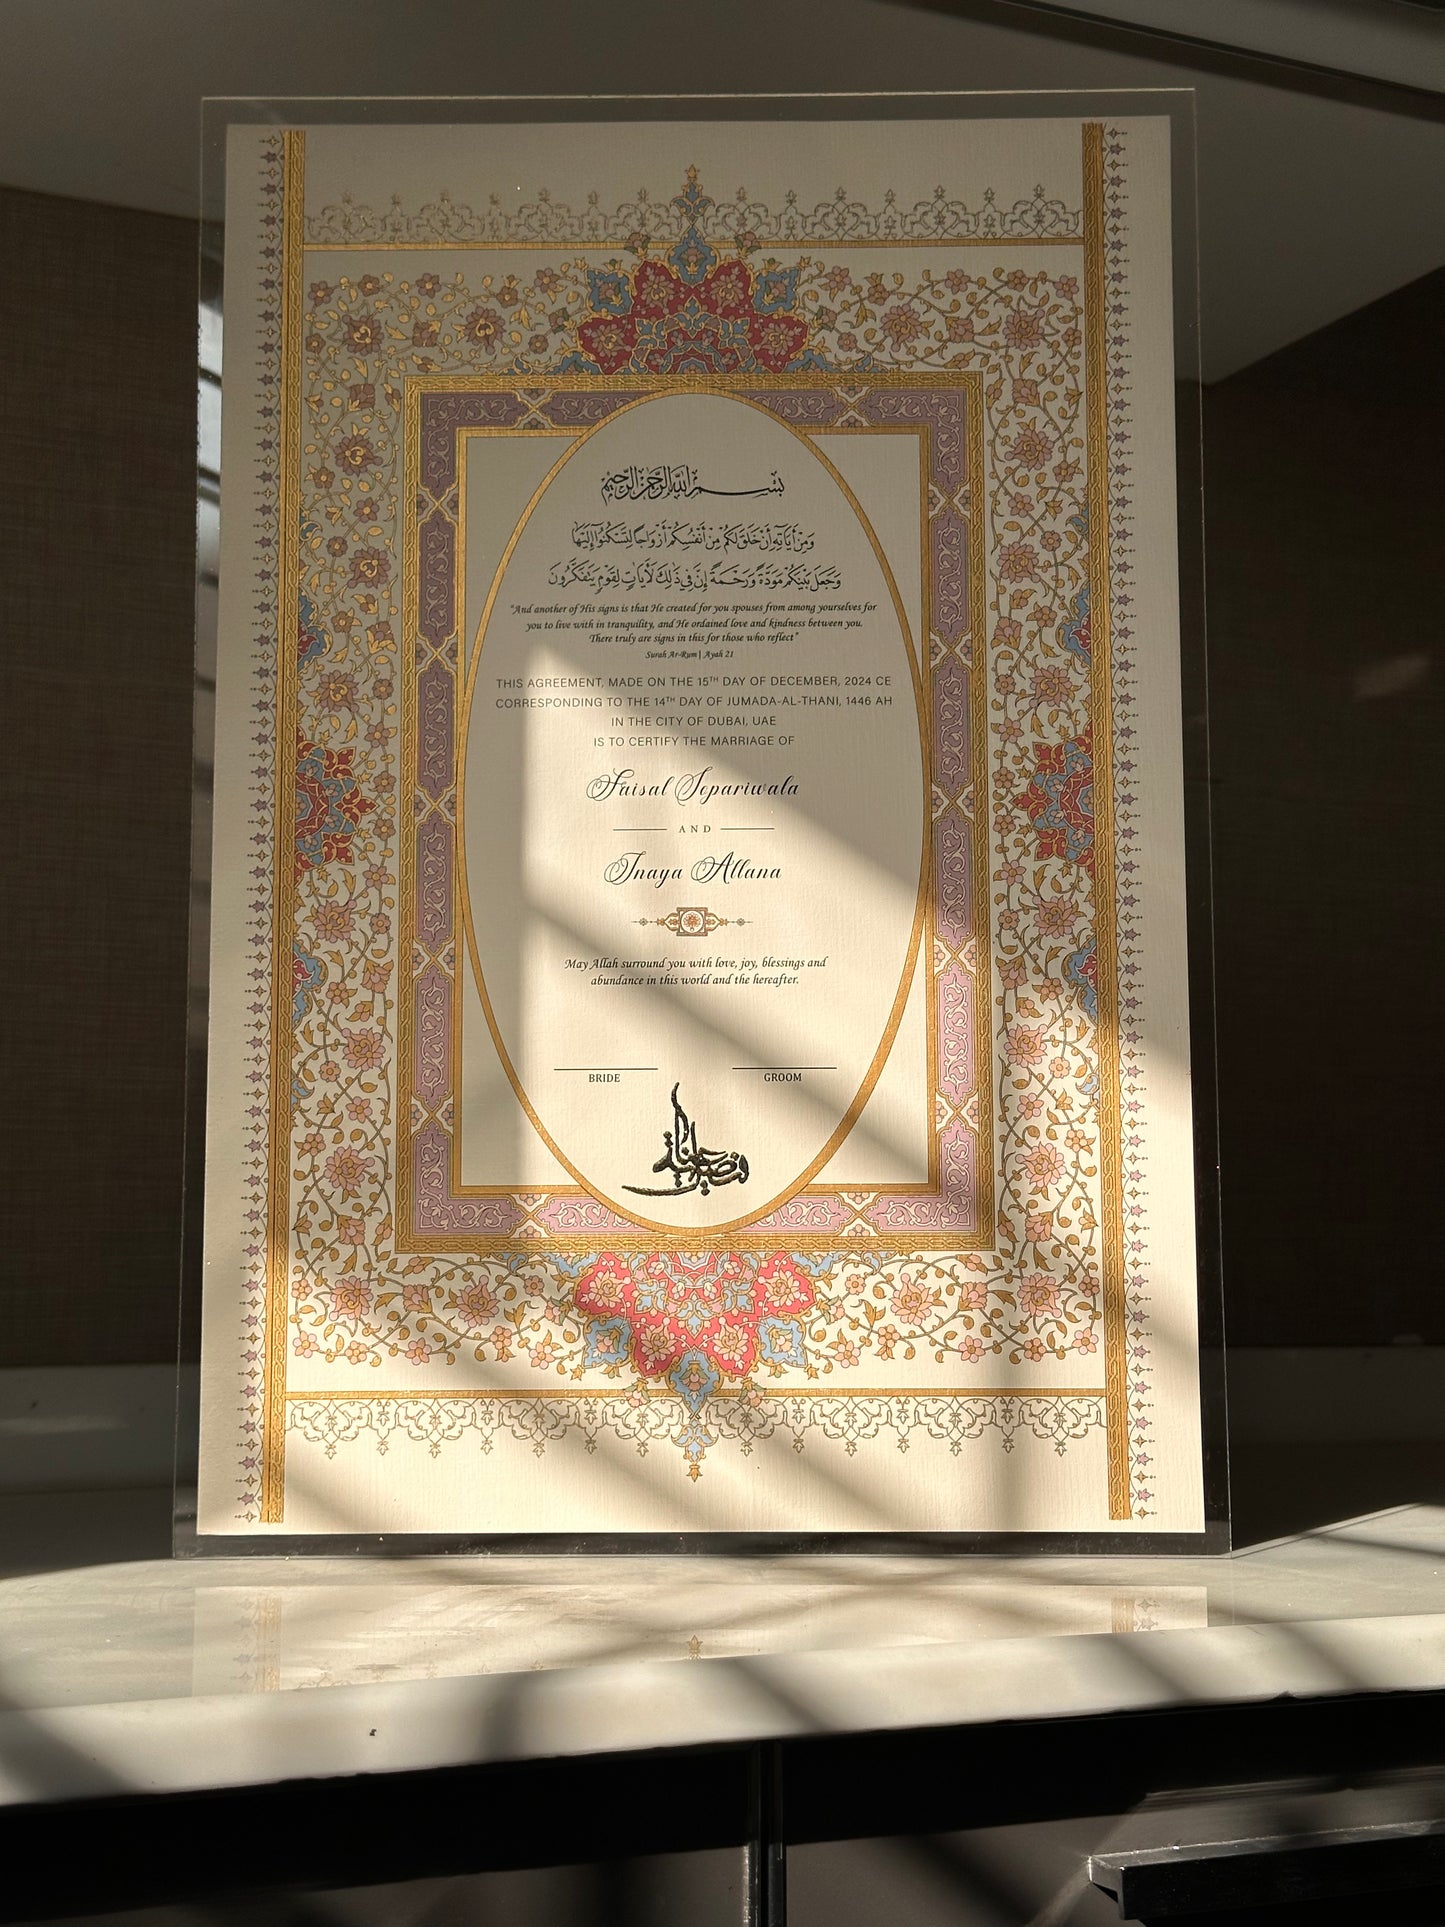 بسم الله الرحمن الرحيم
وَمِنْ آيَاتِهِ أَنْ خَلَقَ لَكُمْ مِنْ أَنْفُسِكُمْ أَزْوَاجًا لِتَسْكُنُوا إِلَيْهَا
وَجَعَلَ بَيْنَكُمْ مَوَدَّةً وَرَحْمَةً إِنَّ فِي ذَلِكَ لَآيَاتٍ لِقَوْمٍ يَتَفَكَّرُونَ
"And another of His signs is that He created for you spouses from among yourselves for
you to live with in tranquility, and He ordained love and kindness between you.
There truly are signs in this for those who reflect"
Surah Ar-Rum | Ayah 21
THIS AGREEMENT, MADE ON THE 15TH DAY OF DECEMBER, 2024 CE
CORRESPONDING TO THE 14TH DAY OF JUMADA-AL-THANI, 1446 AH
IN THE CITY OF DUBAI, UAE
IS TO CERTIFY THE MARRIAGE OF
Faisal Sopariwala
AND
Inaya Allana
May Allah surround you with love, joy, blessings and
abundance in this world and the hereafter.
BRIDE GROOM